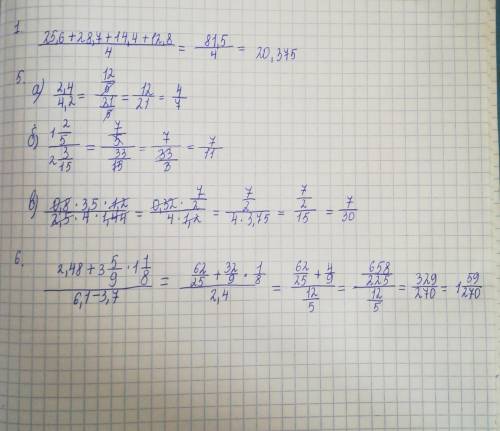 1.
(25,6+28,7+14,4+12,8)/4 = 81,5/4 = 20,375
5.
а) 2,4/4,2 = (12/5)/(21/5) = 12/21 = 4/7
б) (1 2/5)/(2 3/15) = (7/5)/(33/15) = 7/(33/3) = 7/11
в) (0,8·3,5·1,2)/(2,5·4·1,44) = (0,32·7/2)/(4·1,2) = (7/2)/(4·3,75) = (7/2)/15 = 7/30
6.
(2,48+3 5/9·1 1/8)/(6,1-3,7) = (62/25+32/9·1/8)/2,4 = (62/25+4/9)/(12/5) = (658/225)/(12/5) = 329/270 = 1 59/270